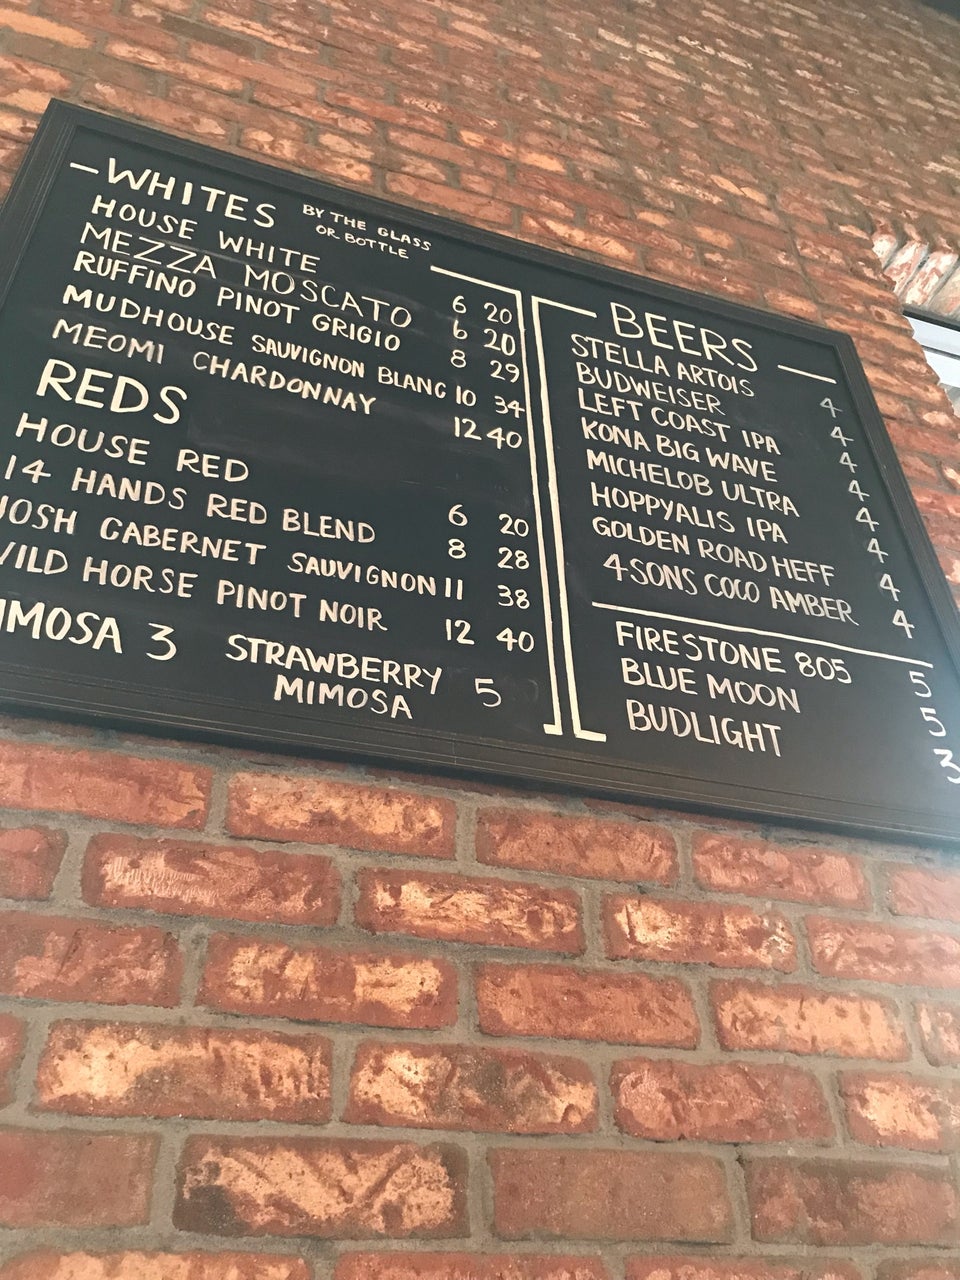 WHITES BY THE GLASS
OR BOTTLE
HOUSE WHITE 6 20
MEZZA MOSCATO 6 20
RUFFINO PINOT GRIGIO 8 29
MUDHOUSE SAUVIGNON BLANC 10 34
MEOMI CHARDONNAY 12 40
REDS
HOUSE RED 6 20
14 HANDS RED BLEND 8 28
JOSH CABERNET SAUVIGNON 11 38
WILD HORSE PINOT NOIR 12 40
IMOSA 3 STRAWBERRY
MIMOSA 5
BEERS
STELLA ARTOIS 4
BUDWEISER 4
LEFT COAST IPA 4
KONA BIG WAVE 4
MICHELOB ULTRA 4
HOPPYALIS IPA 4
GOLDEN ROAD HEFF 4
4 SONS COCO AMBER 4
FIRESTONE 805 5
BLUE MOON 5
BUDLIGHT 3